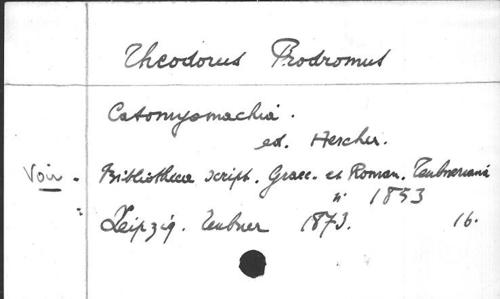 Theodorus Prodromus
Catomyomachia.
ed. Hercher.
Voir. Bibliotheca script. Graec. et Roman. Teubneriana
n° 1853
Leipzig. Teubner 1873. 16.